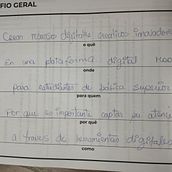 FIO GERAL
Crear recursos digitales creativos innovadores
o quê
En una plataforma digital
onde
para estudiantes de básica superior
para quem
Por que es importante captar su atención
por quê
a través de herramientas digitales
como